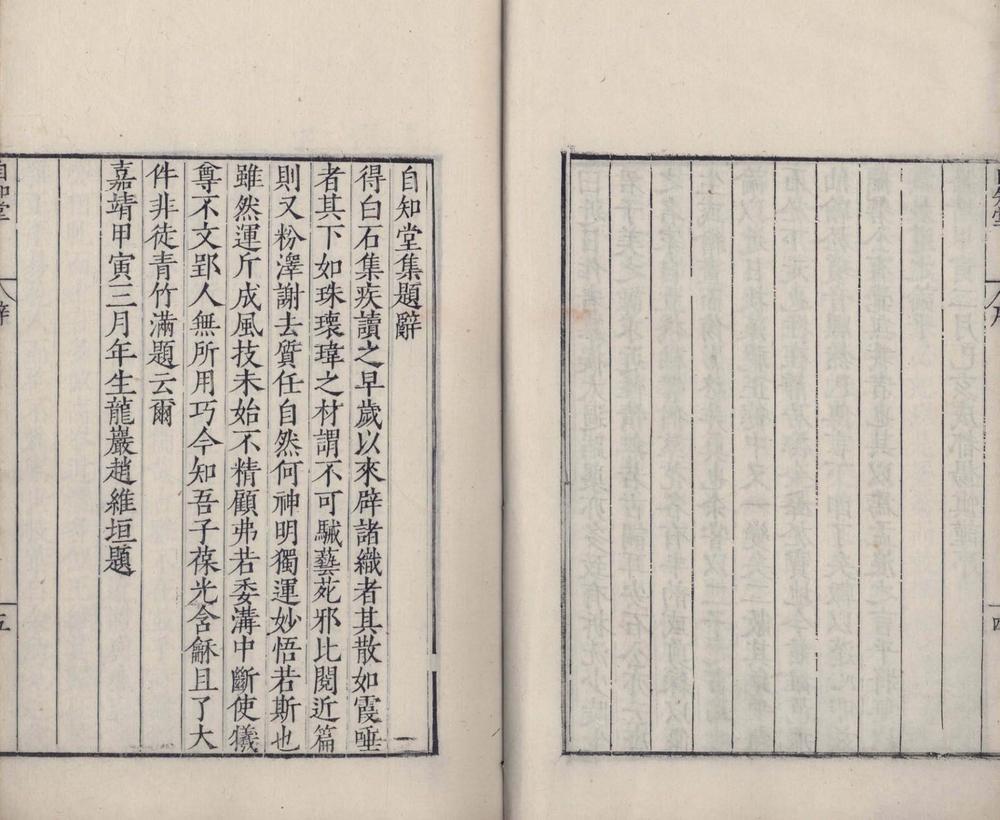 自知堂集題辭
得白石集疾讀之早歲以來辟諸織者其散如霞唾
者其下如珠瓌瑋之材謂不可駴藝苑邪比閱近篇
則又粉澤謝去質任自然何神明獨運妙悟若斯也
雖然運斤成風技未始不精顧弗若委溝中斷使犧
尊不文郢人無所用巧今知吾子葆光含龢且了大
件非徒青竹滿題云爾
嘉靖甲寅三月年生龍巖趙維垣題
自知堂
辭
五
四